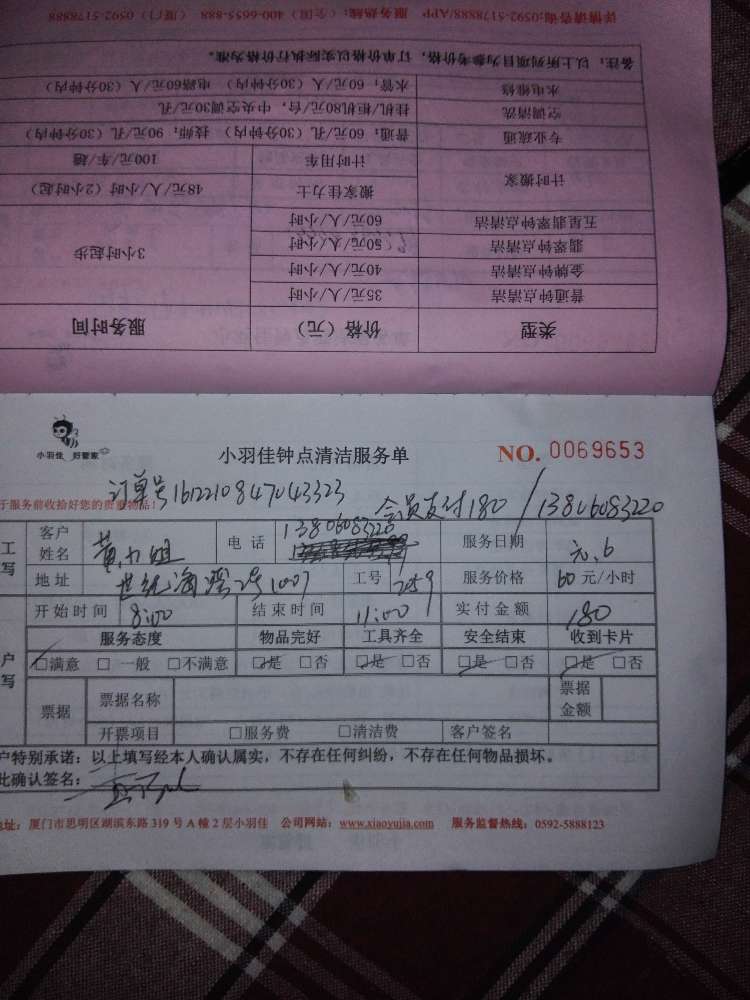 详情请咨询:0592-5178888/APP 服务热线:(全国)400-6655-888 (厦门)0592-5178888
备注:以上所列项目为参考价格,订单价格以实际执行价格为准。
水电维修 水管:60元/人(30分钟内) 电路60元/人(30分钟内)
空调清洗 挂机/柜机80元/台,中央空调30元/孔
专业疏通 普通:60元/孔(30分钟内) 技师:90元/孔(30分钟内)
计时搬家 计时用车 100元/车/趟
搬家佳力士 48元/人/小时(2小时起)
五星翡翠钟点清洁 60元/人/小时 3小时起步
翡翠钟点清洁 50元/人/小时
金牌钟点清洁 40元/人/小时
普通钟点清洁 35元/人/小时
类型 价格(元) 服务时间
小羽佳 好管家
小羽佳钟点清洁服务单 NO. 0069653
订单号1612210847043323 会员支付180 / 13806083220
于服务前收拾好您的贵重物品!
工 客户姓名 黄小姐 电话 13806083220 服务日期 元.6
写 地址 世纪海湾2号1007 工号 2059 服务价格 60元/小时
开始时间 8:00 结束时间 11:00 实付金额 180
户 服务态度 物品完好 工具齐全 安全结束 收到卡片
写 □满意 □一般 □不满意 □是 □否 □是 □否 □是 □否 □是 □否
票据 票据名称 票据金额
开票项目 □服务费 □清洁费 客户签名
户特别承诺:以上填写经本人确认属实,不存在任何纠纷,不存在任何物品损坏。
此确认签名:
地址:厦门市思明区湖滨东路319号A幢2层小羽佳 公司网站:www.xiaoyujia.com 服务监督热线:0592-5888123